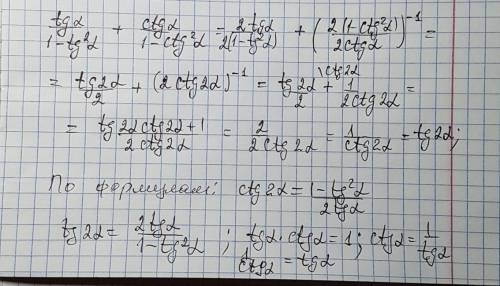 tgα/(1-tg²α) + ctgα/(1-ctg²α) = 2tgα/2(1-tg²α) + (2(1-ctg²α)/2ctgα)⁻¹ =
= tg2α/2 + (2ctg2α)⁻¹ = tg2α/2 \ctg2α + 1/2ctg2α =
= (tg2α ctg2α+1)/2ctg2α = 2/2ctg2α = 1/ctg2α = tg2α;
По формулам: ctg2α = (1-tg²α)/2tgα
tg2α = 2tgα/(1-tg²α) ; tgα·ctgα = 1; ctgα = 1/tgα
1/ctgα = tgα